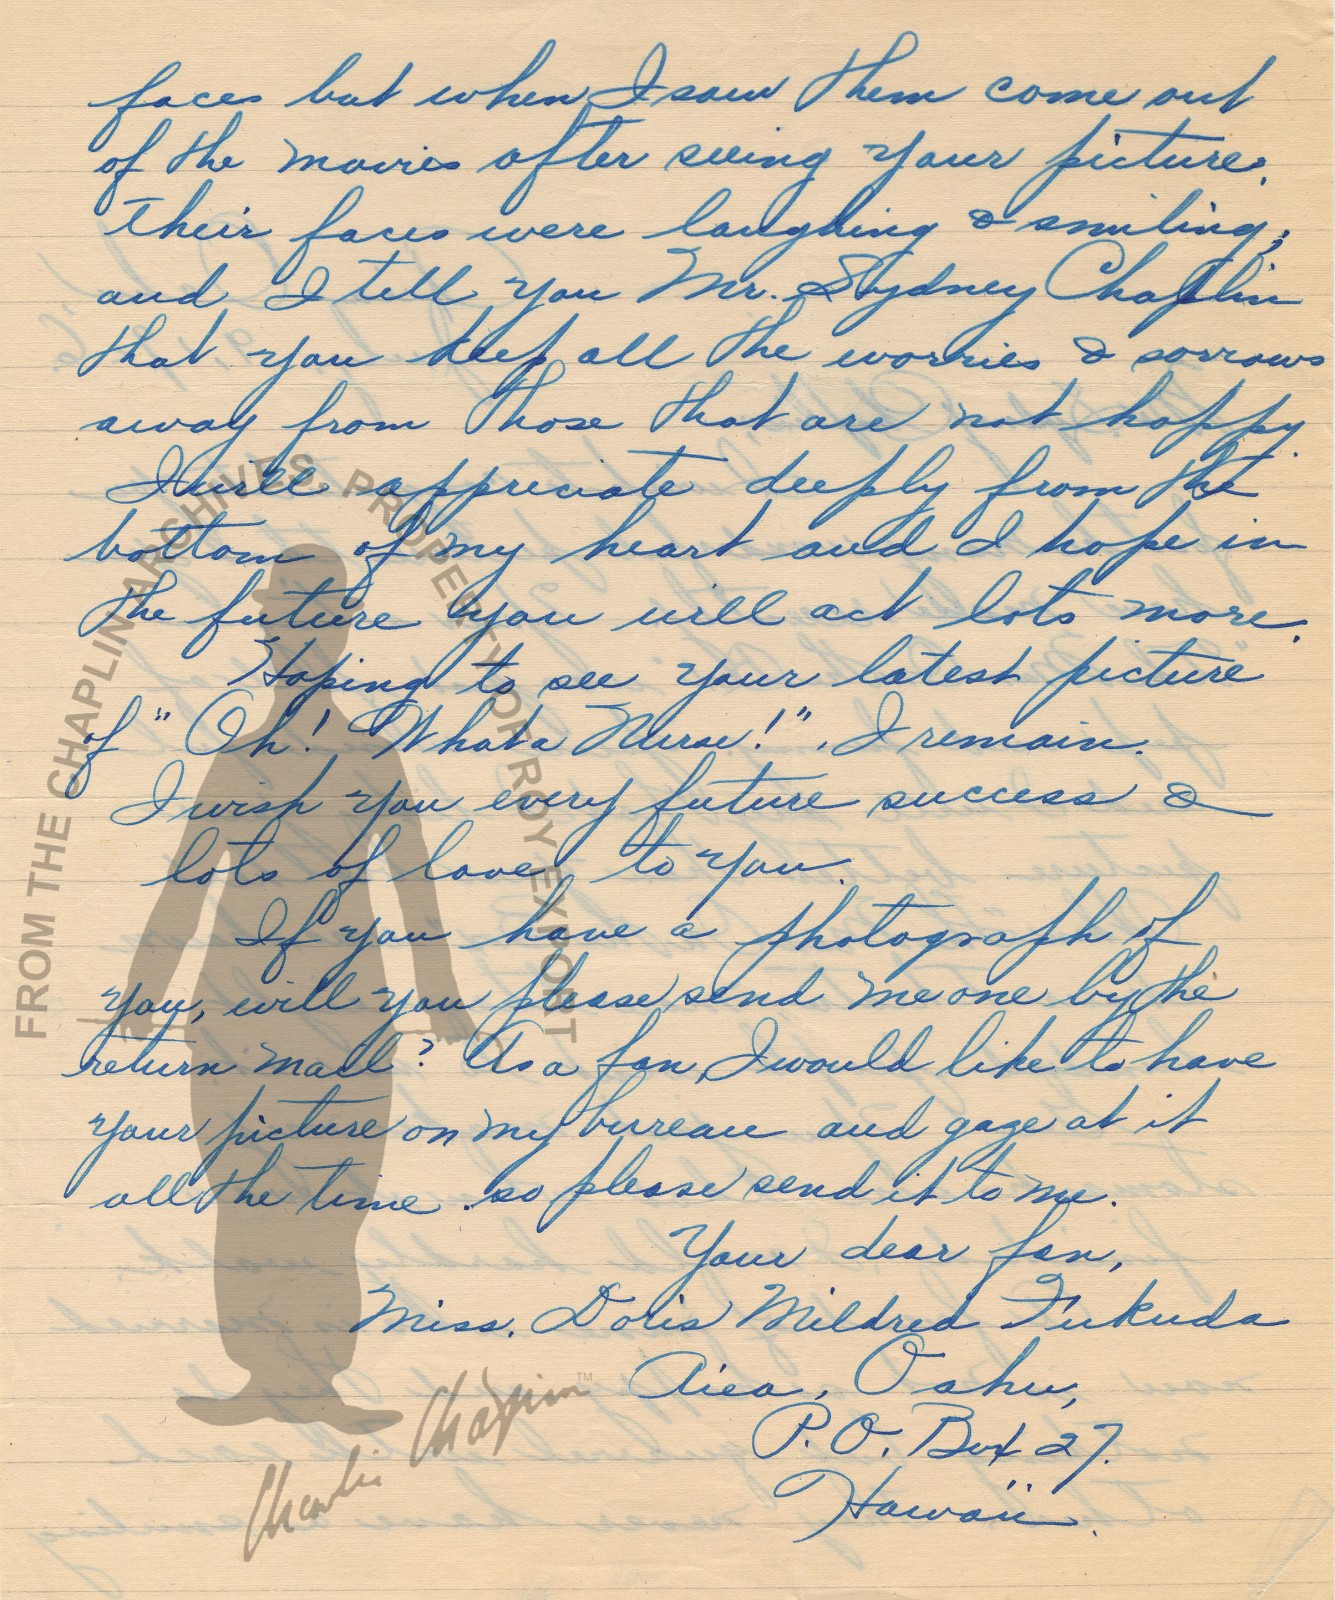 faces but when I saw them come out
of the movies after seeing your picture.
Their faces were laughing & smiling;
and I tell you Mr. Sydney Chaplin
that you keep all the worries & sorrows
away from those that are not happy.
I will appreciate deeply from the
bottom of my heart and I hope in
the future you will act lots more.
Hoping to see your latest picture
of "Oh! What a Nurse!", I remain.
I wish you every future success &
lots of love to you.
If you have a photograph of
you, will you please send me one by the
return mail? As a fan, I would like to have
your picture on my bureau and gaze at it
all the time. so please send it to me.
Your dear fan,
Miss. Doris Mildred Fukuda
Aiea, Oahu,
P.O. Box 27.
Hawaii.
FROM THE CHAPLIN ARCHIVES, PROPERTY OF ROY EXPORT
Charlie Chaplin TM